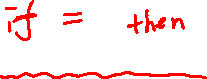 if = then